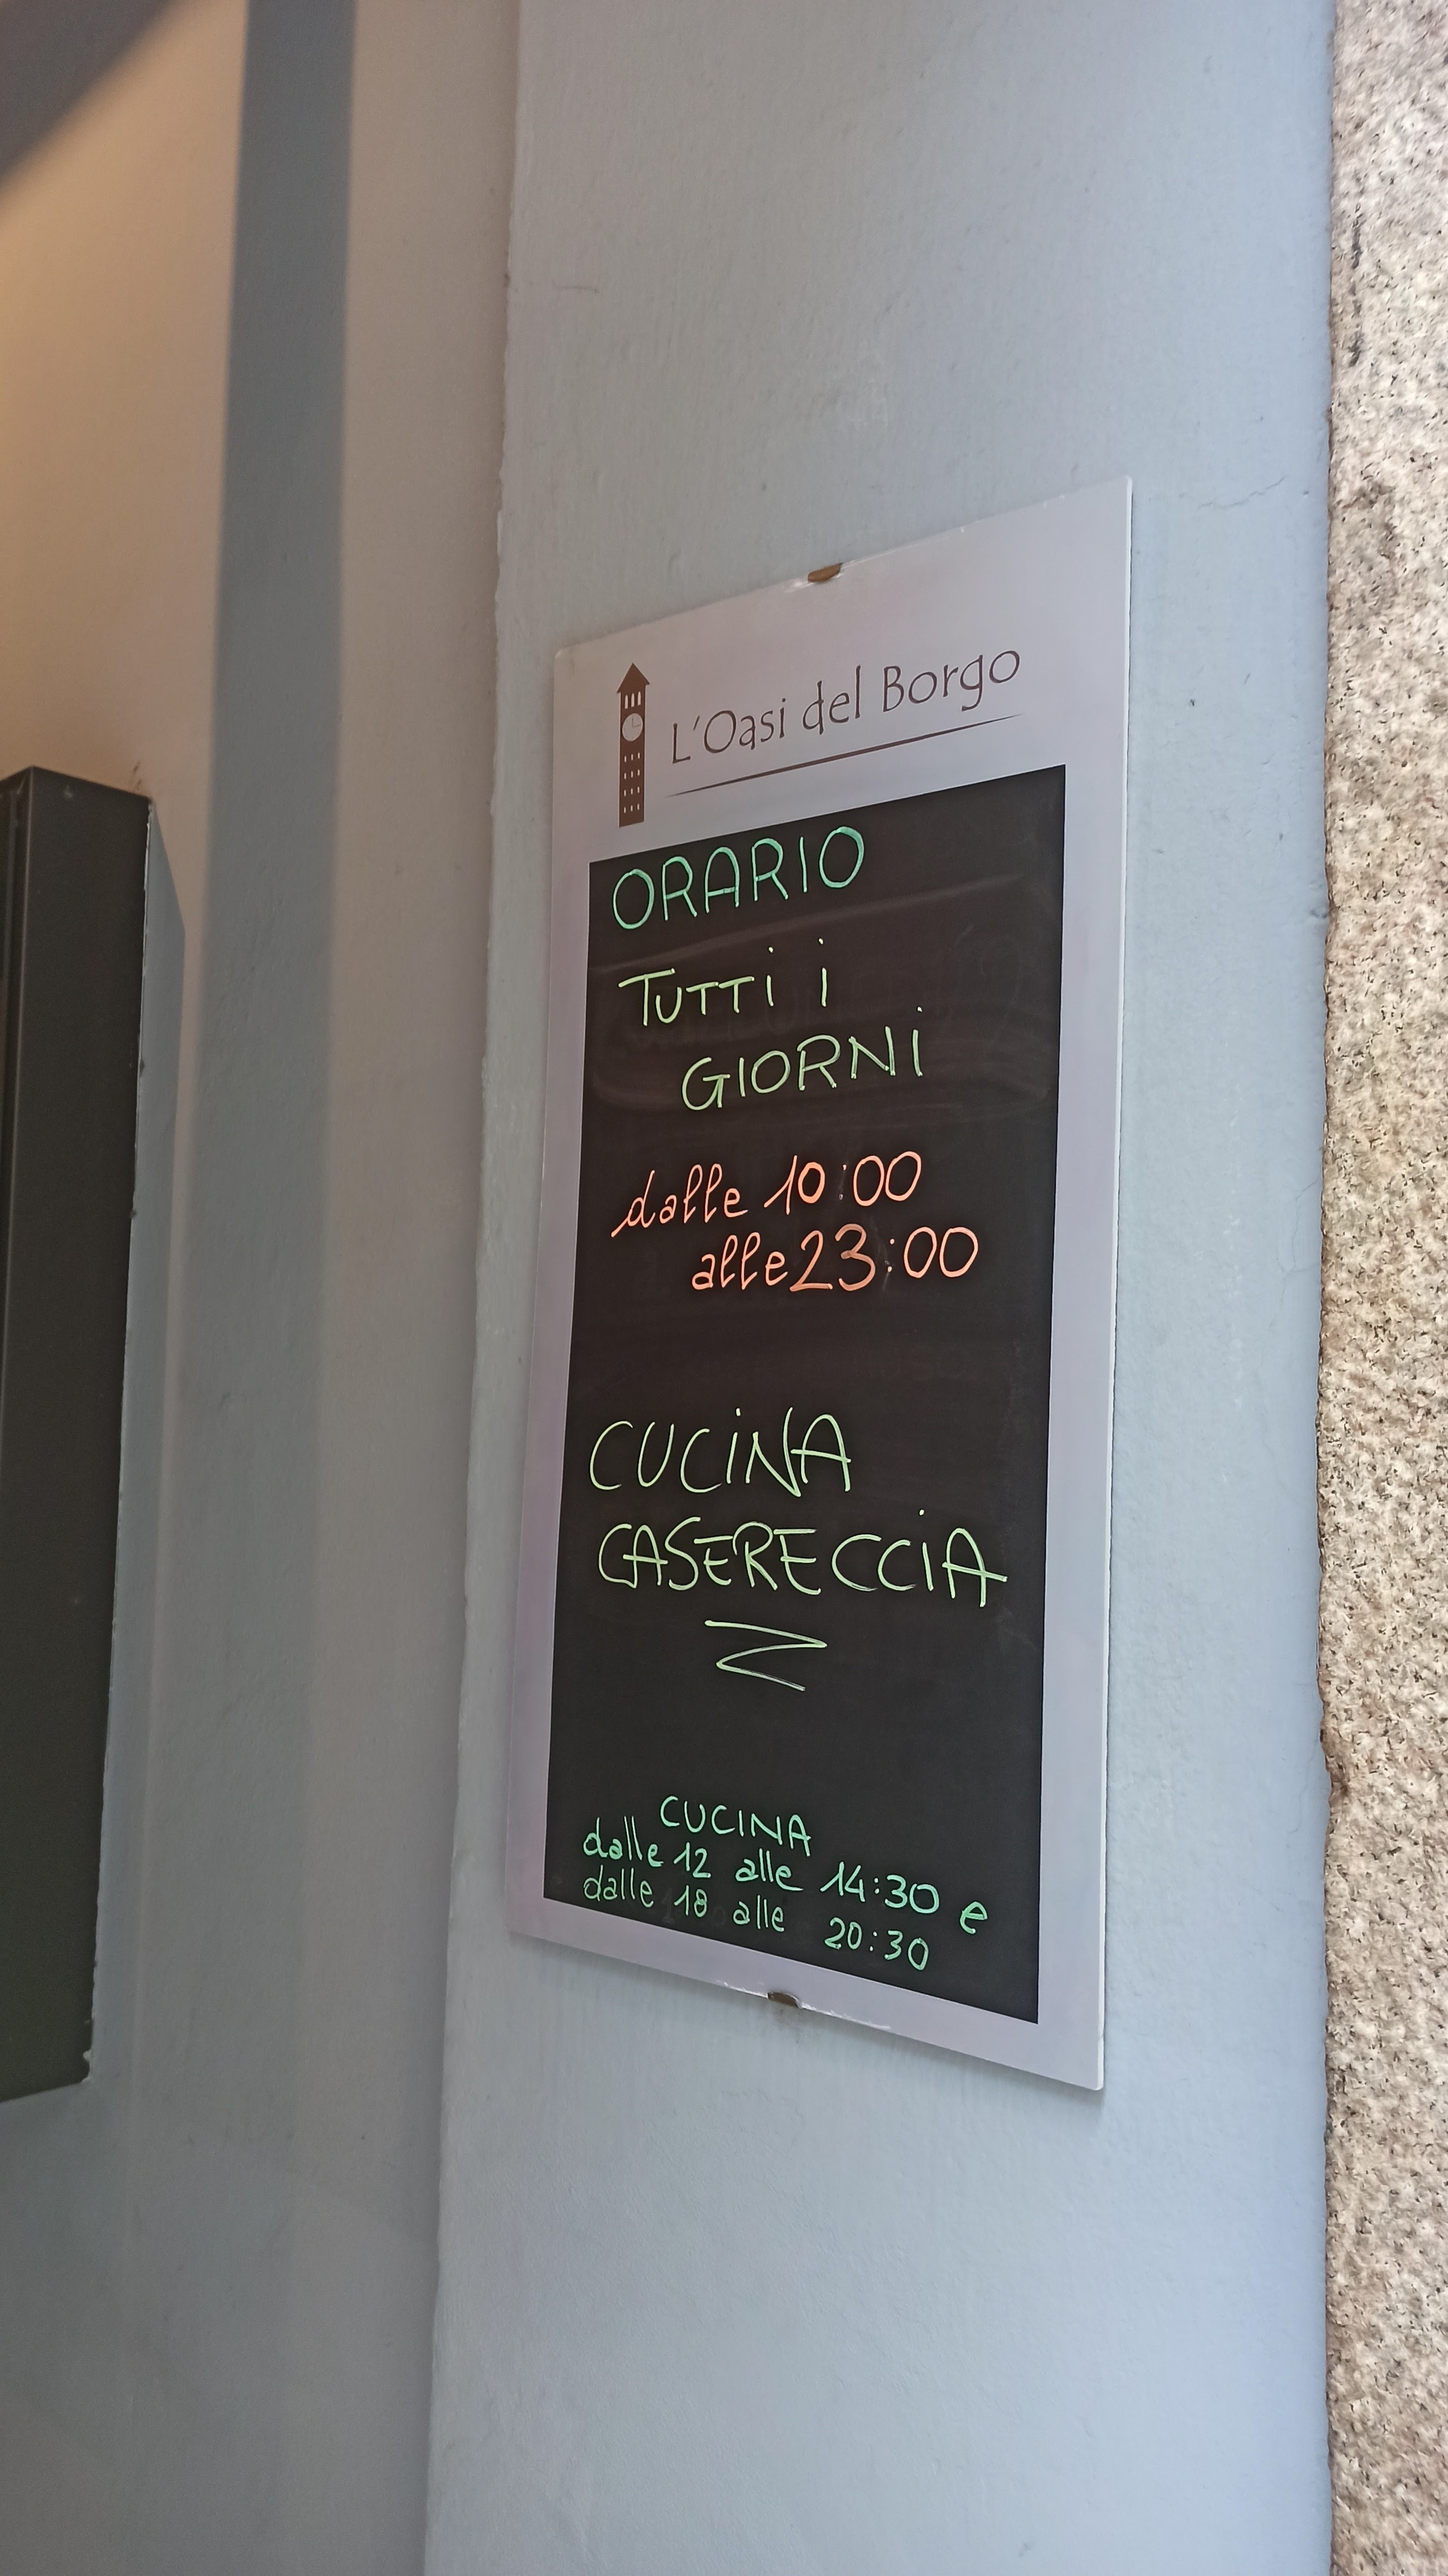 L'Oasi del Borgo
ORARIO
TUTTi i
GIORNi
dalle 10:00
alle 23:00
CUCiNA
CASERECCiA
CUCINA
dalle 12 alle 14:30 e
dalle 18 alle 20:30